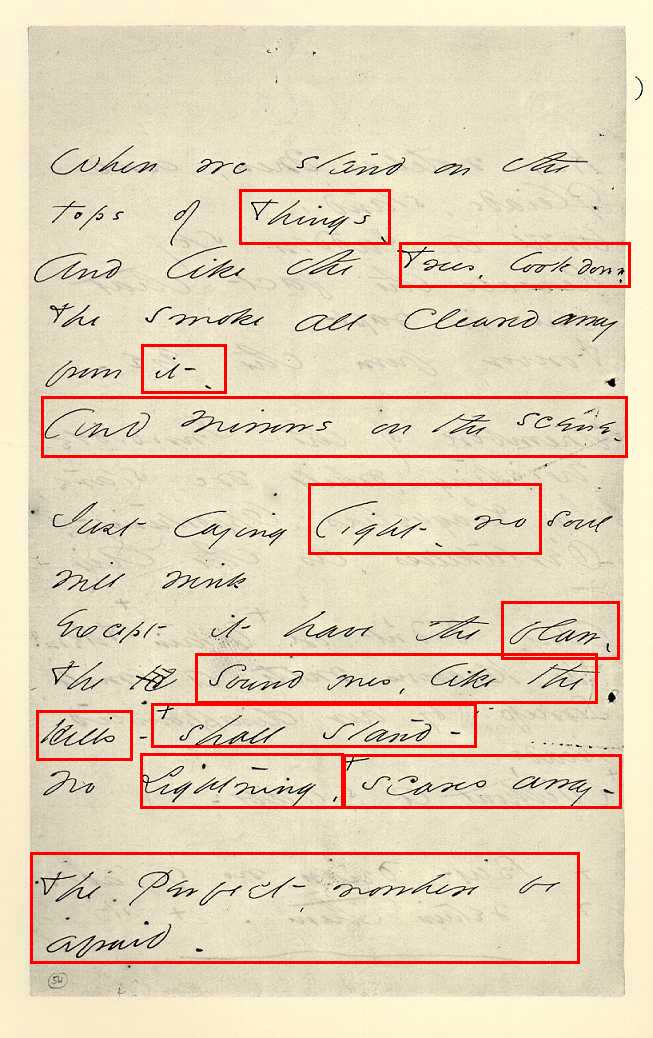 When we stand on the
tops of Things,
And like the Trees, look down,
The smoke all cleared away
from it -
And mirrors on the scene -
Just laying light - no soul
will wink
Except it have the flaw,
The Sound ones, like the
Hills - + shall stand -
no Lightning, + scares away -
The Perfect, nowhere be
afraid.
54